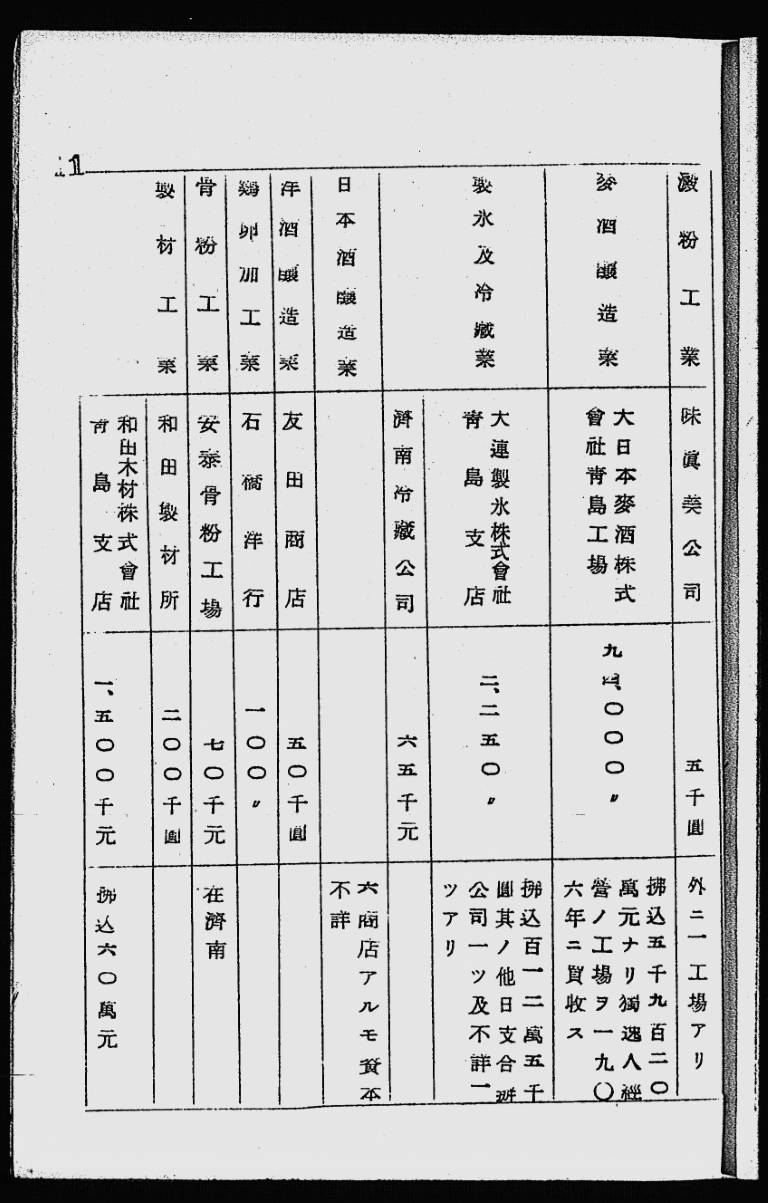 1
澱粉工業
味眞美公司
五千圓
外ニ一工場アリ
麥酒釀造業
大日本麥酒株式
會社靑島工場
九四、〇〇〇〃
拂込五千九百二〇
萬元ナリ獨逸人經
營ノ工場ヲ一九〇
六年ニ買收ス
製氷及冷藏業
大連製氷株式會社
靑島支店
二、二五〇〃
拂込百一二萬五千
圓其ノ他日支合辦
公司一ツ及不詳一
ツアリ
濟南冷藏公司
六五千元
日本酒釀造業
六商店アルモ資本
不詳
洋酒釀造業
友田商店
五〇千圓
鷄卵加工業
石橋洋行
一〇〇〃
骨粉工業
安泰骨粉工場
七〇千元
在濟南
製材工業
和田製材所
二〇〇千圓
和田木材株式會社
靑島支店
一、五〇〇千元
拂込六〇萬元